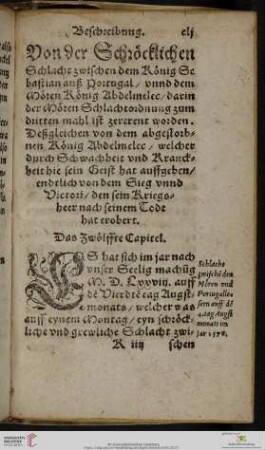 Beschreibung. clj
Von der Schröcklichen
Schlacht zwischen dem König Se
bastian auß Portugal / vnnd dem
Móren König Abdelmelec / darin
der Móren Schlachtordnung zum
dritten mahl ist zertrent worden.
Deßgleichen von dem abgestorb-
nen König Abdelmelec / welcher
durch Schwachheit vnd Kranck-
heit hie sein Geist hat auffgeben /
endtlich von dem Sieg vnnd
Victori / den sein Kriegs-
heer nach seinem Todt
hat erobert.
Das Zwölffte Capitel.
ES hat sich im jar nach
vnser Seelig machũg
M. D. Lxxviij. auff
dē Vierdtē tag Augst-
monats / welcher was
auff eynem Montag / eyn schröck-
liche vnd grewliche Schlacht zwi-
K iiij schen
Schlacht
zwischē den
Móren vnd
Portugalle-
sern auff dē
4. tag Augst
monats im
jar 1578.